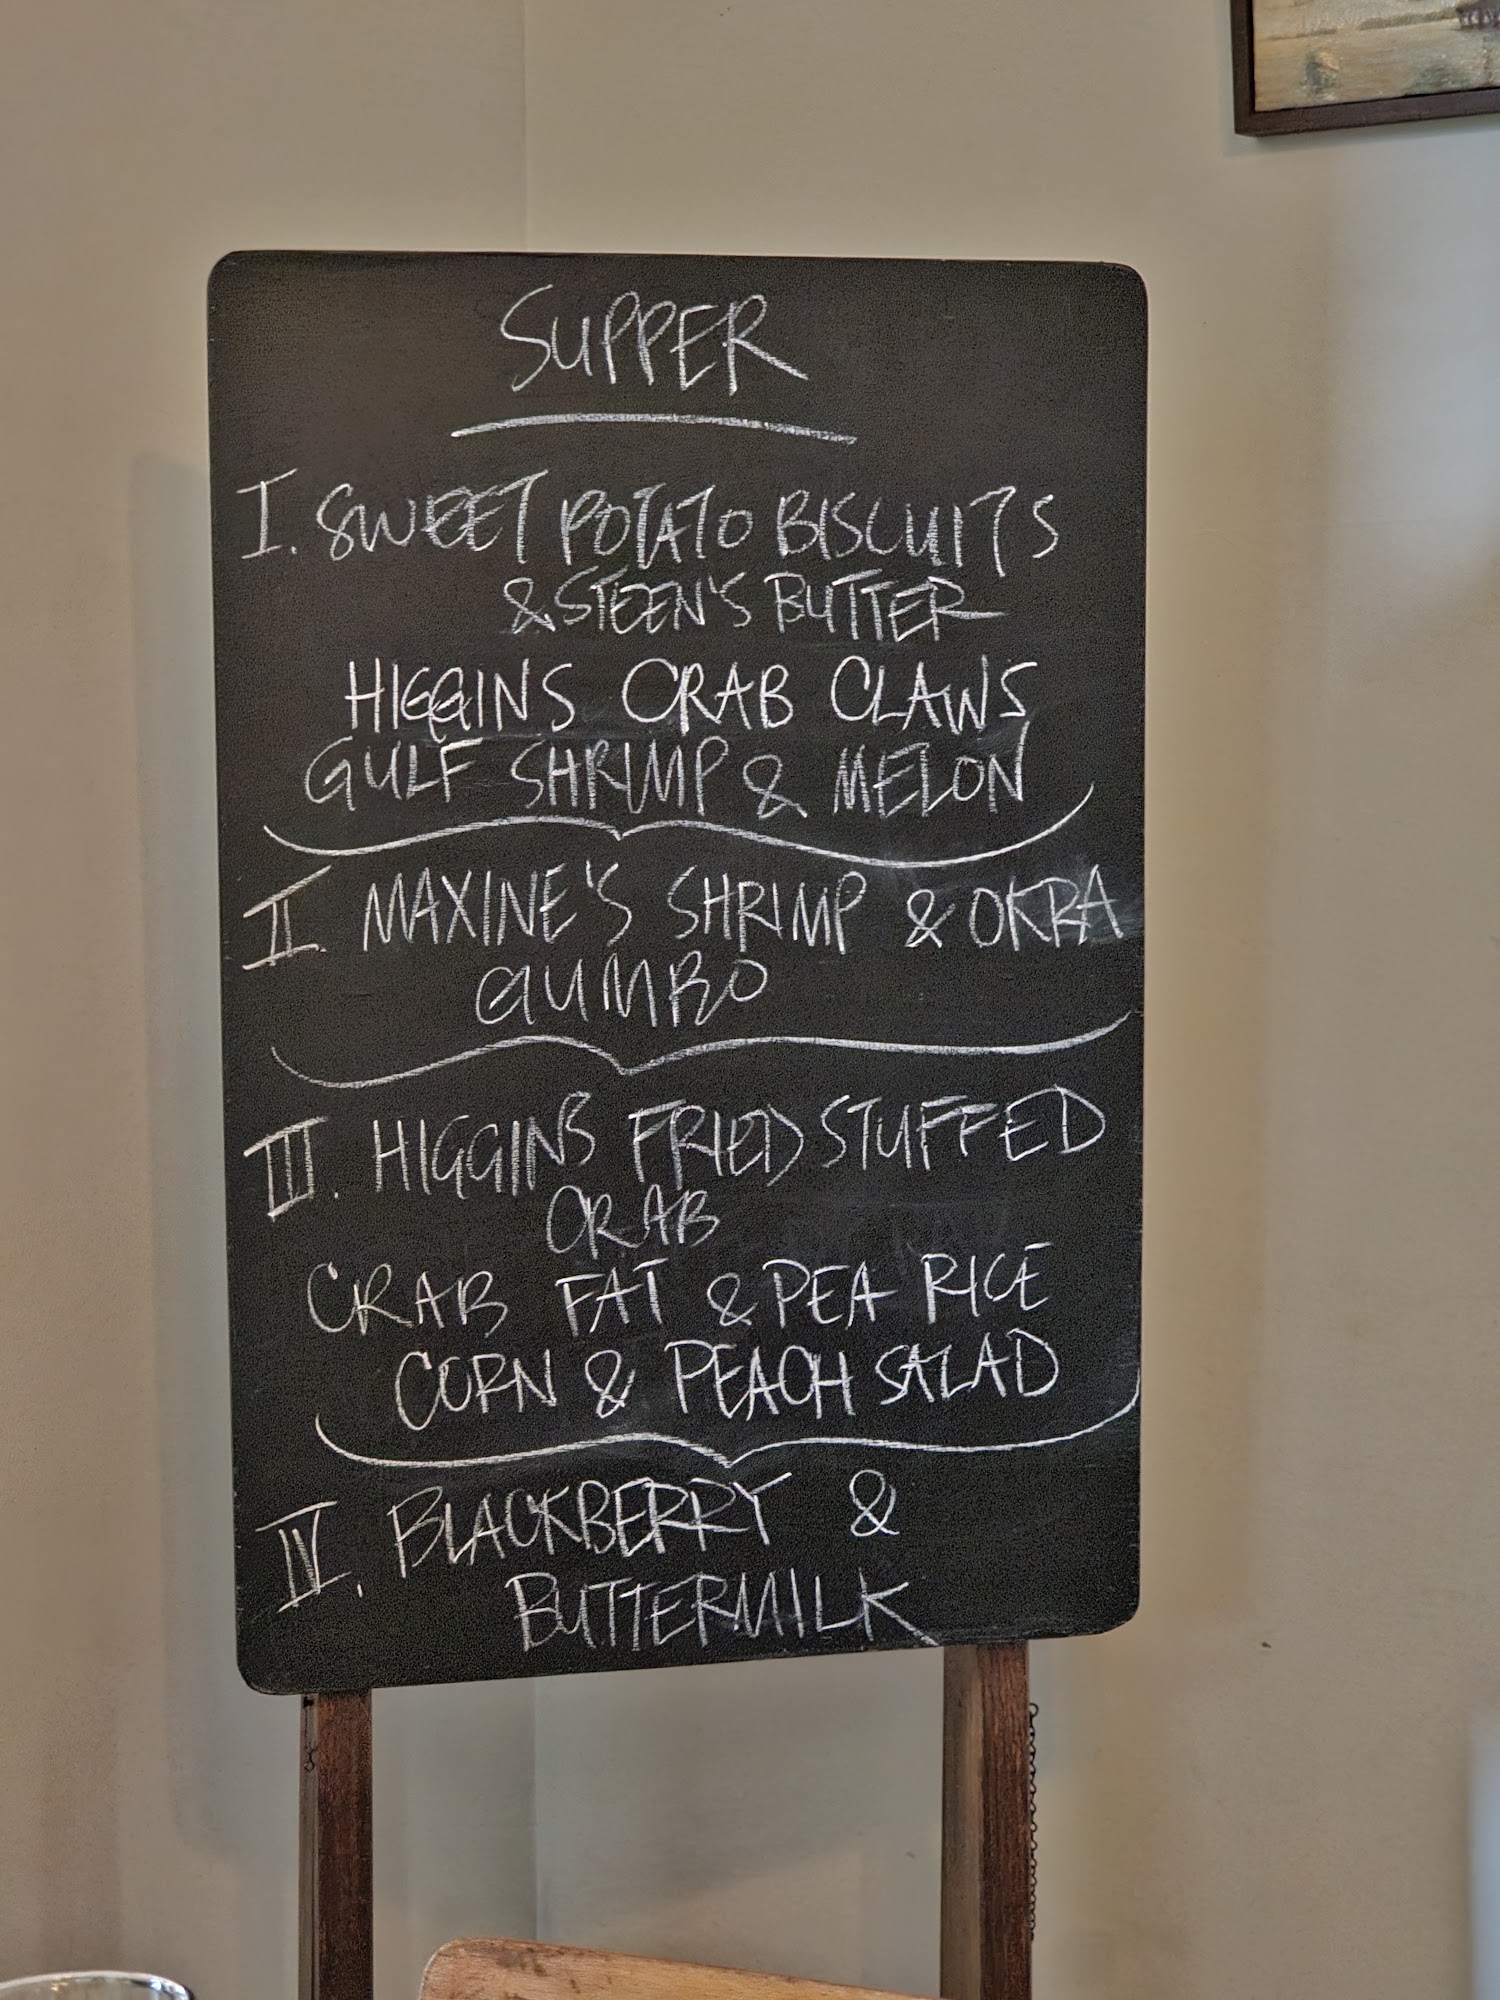 SUPPER
I. SWEET POTATO BISCUITS
& STEEN'S BUTTER
HIGGINS CRAB CLAWS
GULF SHRIMP & MELON
II. MAXINE'S SHRIMP & OKRA
GUMBO
III. HIGGINS FRIED STUFFED
CRAB
CRAB FAT & PEA RICE
CORN & PEACH SALAD
IV. BLACKBERRY &
BUTTERMILK